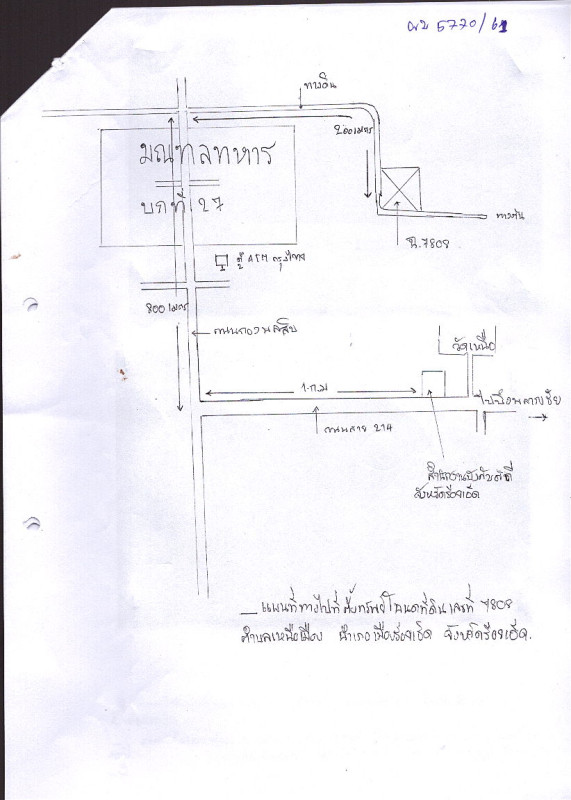 ผบ 5770/61
ทางดิน
200 เมตร
มณฑลทหาร
บกที่ 27
ทางดิน
ฉ.7808
ตู้ ATM กรุงไทย
800 เมตร
ถนนกองพลสิบ
วัดเหนือ
1 ก.ม
ถนนสาย 214
สำนักงานบังคับคดี
จังหวัดร้อยเอ็ด
แผนที่ทางไปที่ตั้งทรัพย์โฉนดที่ดินเลขที่ 7808
ตำบลเหนือเมือง อำเภอเมืองร้อยเอ็ด จังหวัดร้อยเอ็ด.